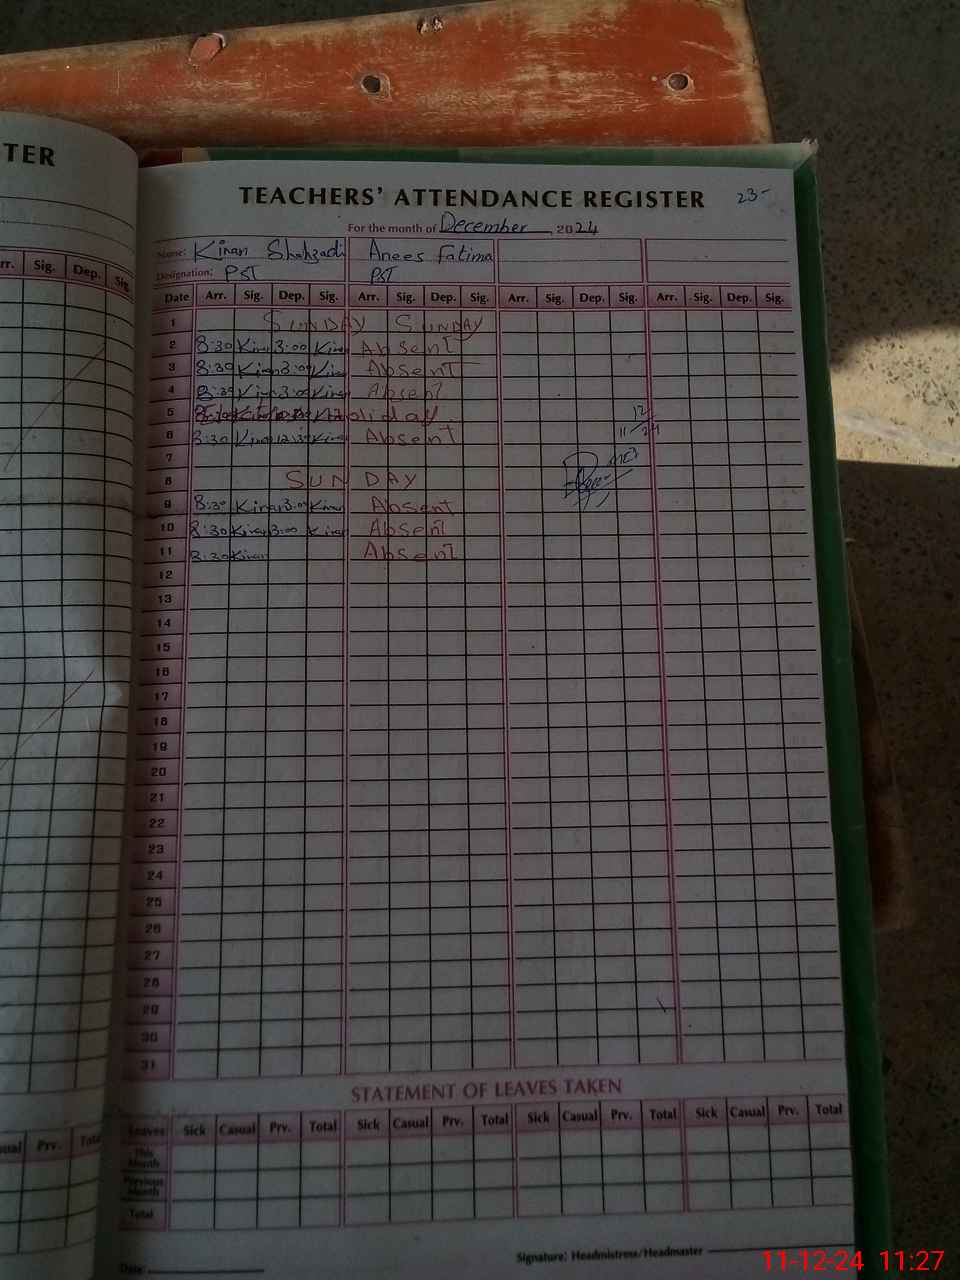 TER
TEACHERS' ATTENDANCE REGISTER 23-
For the month of December, 2024
Name: Kiran Shahzadi Anees Fatima
Designation: PST PST
rr. Sig. Dep. Sig.
Date Arr. Sig. Dep. Sig. Arr. Sig. Dep. Sig. Arr. Sig. Dep. Sig. Arr. Sig. Dep. Sig.
1 SUNDAY SUNDAY
2 8:30 Kiran 3:00 Kiran Absent
3 8:30 Kiran 3:00 Kiran Absent
4 8:30 Kiran 3:00 Kiran Absent
5 holiday
6 8:30 Kiran 12:30 Kiran Absent
7
8 SUNDAY
9 8:30 Kiran 3:00 Kiran Absent
10 8:30 Kiran 3:00 Kiran Absent
11 8:30 Kiran Absent
12
11 24
12
13
14
15
16
17
18
19
20
21
22
23
24
25
26
27
28
29
30
31
STATEMENT OF LEAVES TAKEN
Leaves Sick Casual Prv. Total Sick Casual Prv. Total Sick Casual Prv. Total Sick Casual Prv. Total
sual Prv. Total
This Month
Previous Month
Total
Date:
Signature: Headmistress/Headmaster
11-12-24 11:27